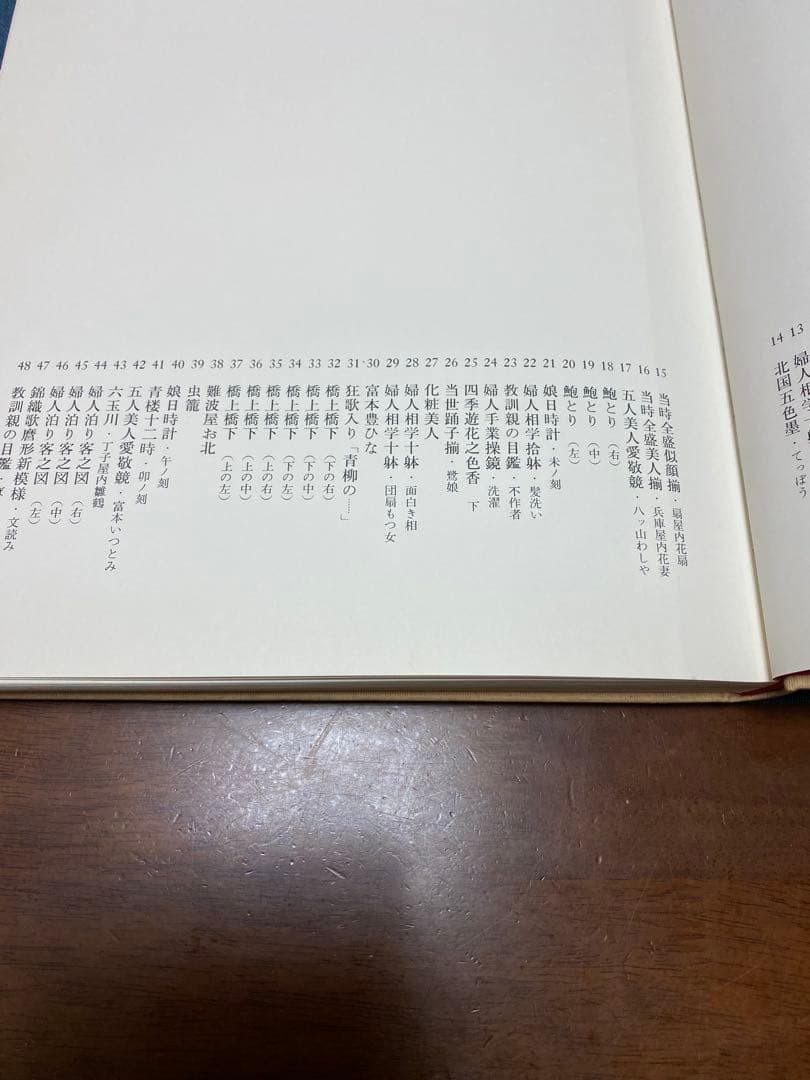 13 婦人相学十
14 北国五色墨・てっぽう
15 当時全盛似顔揃・扇屋内花扇
16 当時全盛美人揃・兵庫屋内花妻
17 五人美人愛敬競・八ッ山わしや
18 鮑とり（右）
19 鮑とり（中）
20 鮑とり（左）
21 娘日時計・未ノ刻
22 婦人相学拾躰・髪洗い
23 教訓親の目鑑・不作者
24 婦人手業操鏡・洗濯
25 四季遊花之色香 下
26 当世踊子揃・鷺娘
27 化粧美人
28 婦人相学十躰・面白き相
29 婦人相学十躰・団扇もつ女
30 富本豊ひな
31 狂歌入り「青柳の……」
32 橋上橋下（下の右）
33 橋上橋下（下の中）
34 橋上橋下（下の左）
35 橋上橋下（上の右）
36 橋上橋下（上の中）
37 橋上橋下（上の左）
38 難波屋お北
39 虫籠
40 娘日時計・午ノ刻
41 青楼十二時・卯ノ刻
42 五人美人愛敬競・富本いつとみ
43 六玉川・丁子屋内雛鶴
44 婦人泊り客之図（右）
45 婦人泊り客之図（中）
46 婦人泊り客之図（左）
47 錦織歌麿形新模様・文読み
48 教訓親の目鑑・